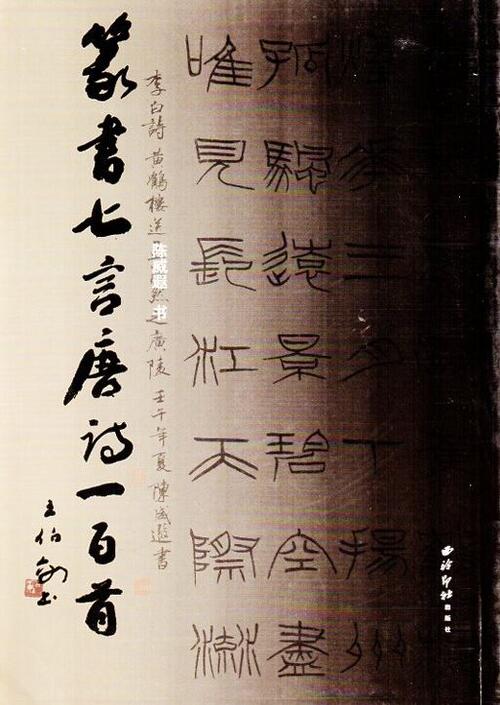 篆書七言唐诗一百首
王伯敏书
煙花三月下揚州
孤颿遠景碧空盡
唯見長江天際流
李白詩 黃鶴樓送 然之廣陵 壬午年夏 陳 書
陈 书
西泠印社 出版社